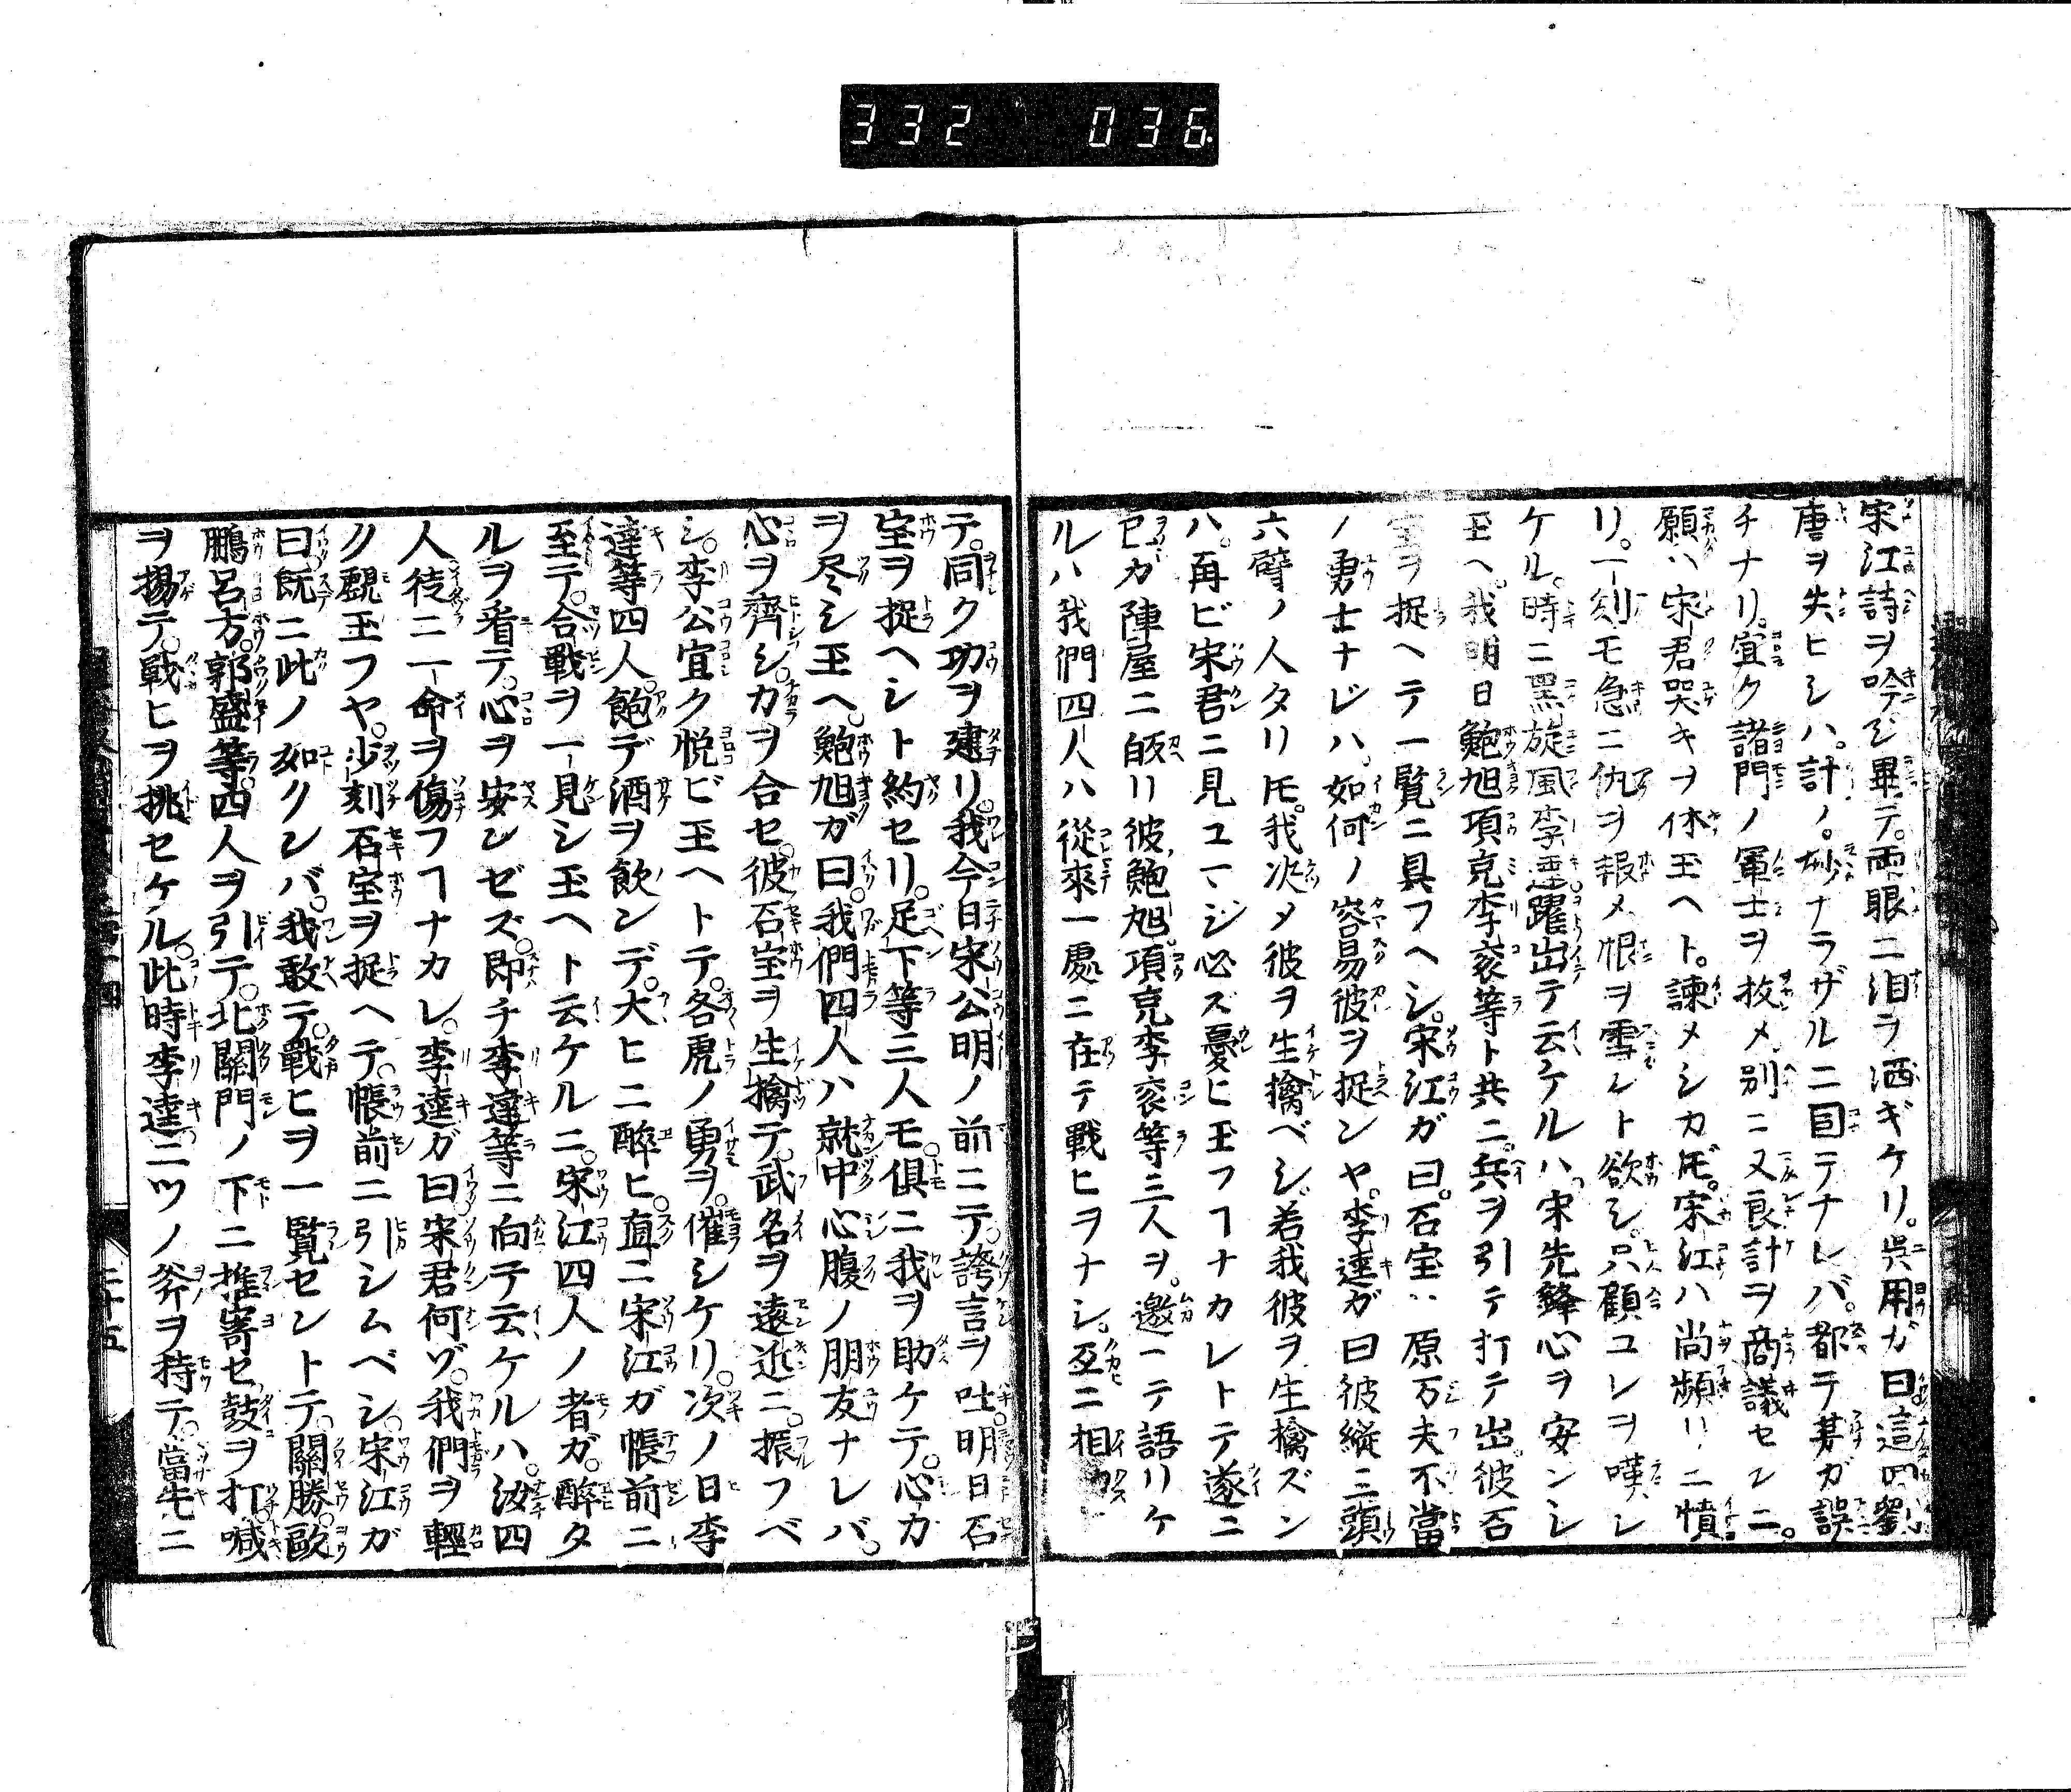 332 036
宋江詩ヲ吟ジ畢テ。両眼ニ泪ヲ洒ギケリ。呉用ガ曰。這回劉
唐ヲ失ヒシハ。計ノ。妙ナラザルニ因テナレバ。都テ某ガ誤
チナリ。宜ク諸門ノ軍士ヲ収メ。別ニ又良計ヲ商議センニ。
願ハ宋君哭キヲ休玉ヘト。諫メシカ𪜈。宋江ハ尚頻リニ憤
リ。一刻モ急ニ仇ヲ報メ恨ヲ雪ント欲シ。只顧コレヲ嘆シ
ケル。時ニ黒旋風李逵。躍出テ云ケルハ。宋先鋒心ヲ安ンシ
玉ヘ。我明日鮑旭項充李袞等ト共ニ。兵ヲ引テ打テ出。彼石
宝ヲ捉ヘテ一覧ニ具フヘシ。宋江ガ曰。石宝ハ原万夫不當
ノ勇士ナレハ。如何ノ容易彼ヲ捉ンヤ。李逵ガ曰彼縦三頭
六臂ノ人タリ𪜈。我决メ彼ヲ生擒ベシ。若我彼ヲ生擒ズン
ハ。再ビ宋君ニ見ユマジ必ズ憂ヒ玉フヿナカレトテ遂ニ
已カ陣屋ニ皈リ彼鮑旭項充李袞等三人ヲ。邀ヘテ語リケ
ルハ我們四人ハ從來一處ニ在テ戰ヒヲナシ。互ニ相
テ。同ク功ヲ建リ。我今日宋公明ノ前ニテ。誇言ヲ吐。明日石
宝ヲ捉ヘント約セリ。足下等三人モ。俱ニ我ヲ助ケテ。心力
ヲ尽シ玉ヘ。鮑旭ガ曰。我們四人ハ就中心腹ノ朋友ナレバ。
心ヲ齊シ。力ヲ合セ。彼石宝ヲ生擒テ。武名ヲ遠近ニ。振フベ
シ。李公宜ク悦ビ玉ヘトテ。各虎ノ勇ヲ。催シケリ。次ノ日李
逵等四人。飽デ酒ヲ飲ンデ。大ヒニ醉ヒ。直ニ宋江ガ帳前ニ
至テ。合戰ヲ一見シ玉ヘト云ケルニ。宋江四人ノ者ガ。醉タ
ルヲ看テ。心ヲ安ンゼズ。即チ李逵等ニ向テ云ケルハ。汝四
人徒ニ一命ヲ傷フヿナカレ。李逵ガ曰宋君何ゾ。我們ヲ輕
ク覷玉フヤ。少刻石宝ヲ捉ヘテ。帳前ニ引シムベシ。宋江ガ
曰。既ニ此ノ如クンバ。我敢テ。戰ヒヲ一覧セントテ。關勝。歐
鵬呂方。郭盛等。四人ヲ引テ。北關門ノ下ニ推寄セ。鼓ヲ打。喊
ヲ揚テ。戰ヒヲ挑セケル。此時李逵ニツノ斧ヲ持テ。當先ニ
二十五